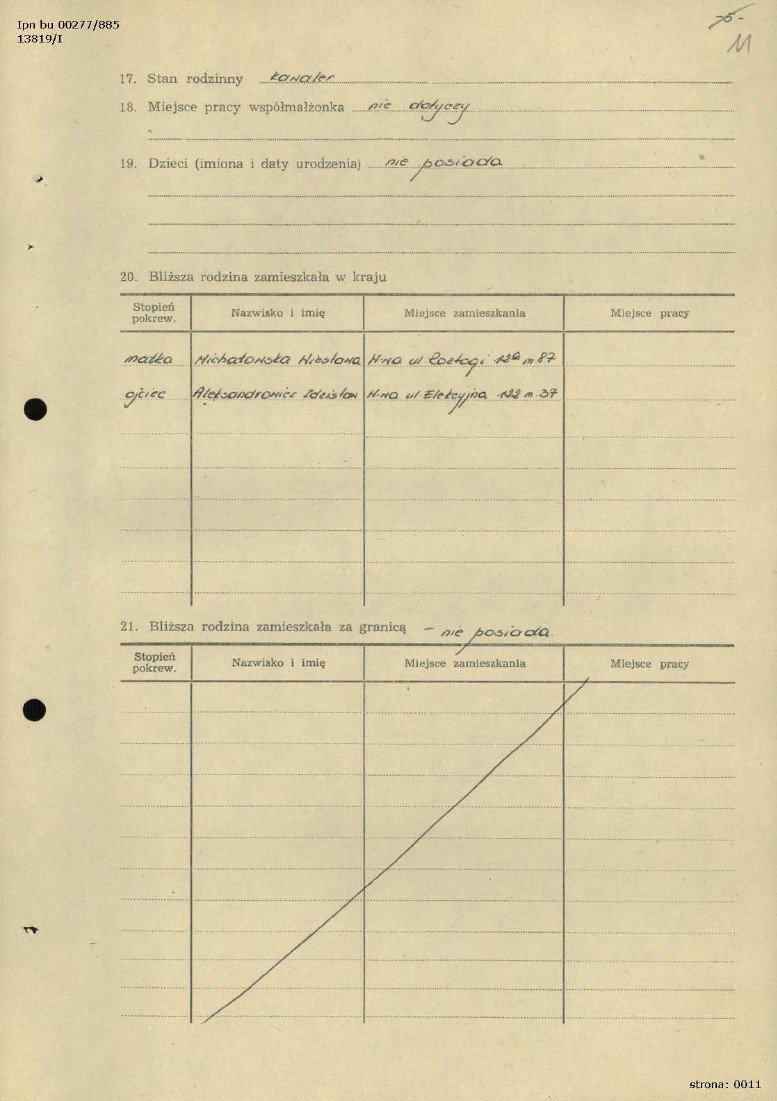 Ipn bu 00277/885
13819/I
-5-
11
17. Stan rodzinny kawaler
18. Miejsce pracy współmałżonka nie dotyczy
19. Dzieci (imiona i daty urodzenia) nie posiada
20. Bliższa rodzina zamieszkała w kraju
Stopień pokrew. Nazwisko i imię Miejsce zamieszkania Miejsce pracy
matka Michałowska Wiesława W-wa ul. Rozłogi m 87
ojciec Aleksandrowicz Zdzisław W-wa ul. Elekcyjna m. 37
21. Bliższa rodzina zamieszkała za granicą - nie posiada.
Stopień pokrew. Nazwisko i imię Miejsce zamieszkania Miejsce pracy
strona: 0011